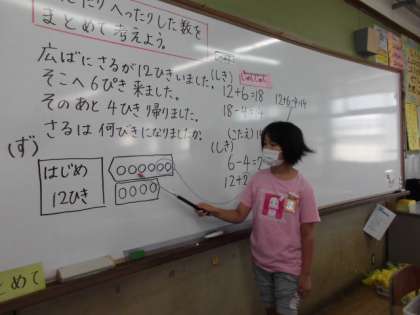 へったりした数を
まとめて考えよう。
広ばにさるが12ひきいました。
そこへ6ぴき来ました。
そのあと4ひき帰りました。
さるは何びきになりましたか。
(ず)
はじめ
12ひき
(しき)
12+6=18
(こたえ)
(しき)
6-4=
12+2
とめて